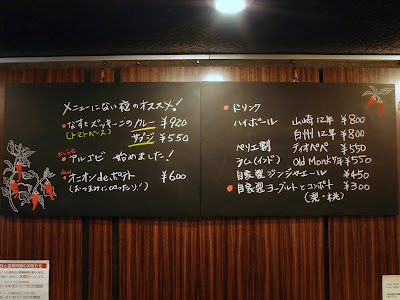 メニューにない夜のオススメ!
なすとズッキーニのカレー ¥920
(トマトベース) サブジ ¥550
アルゴビ 始めました!
オニオン de ポテト ¥600
(おつまみにぴったり!)
ドリンク
ハイボール 山崎12年 ¥800
白州12年 ¥800
ペリエ割 ティオペペ ¥550
ラム(インド) Old Monk 7年 ¥550
自家製ジンジャエール ¥450
自家製ヨーグルトとコンポート ¥300